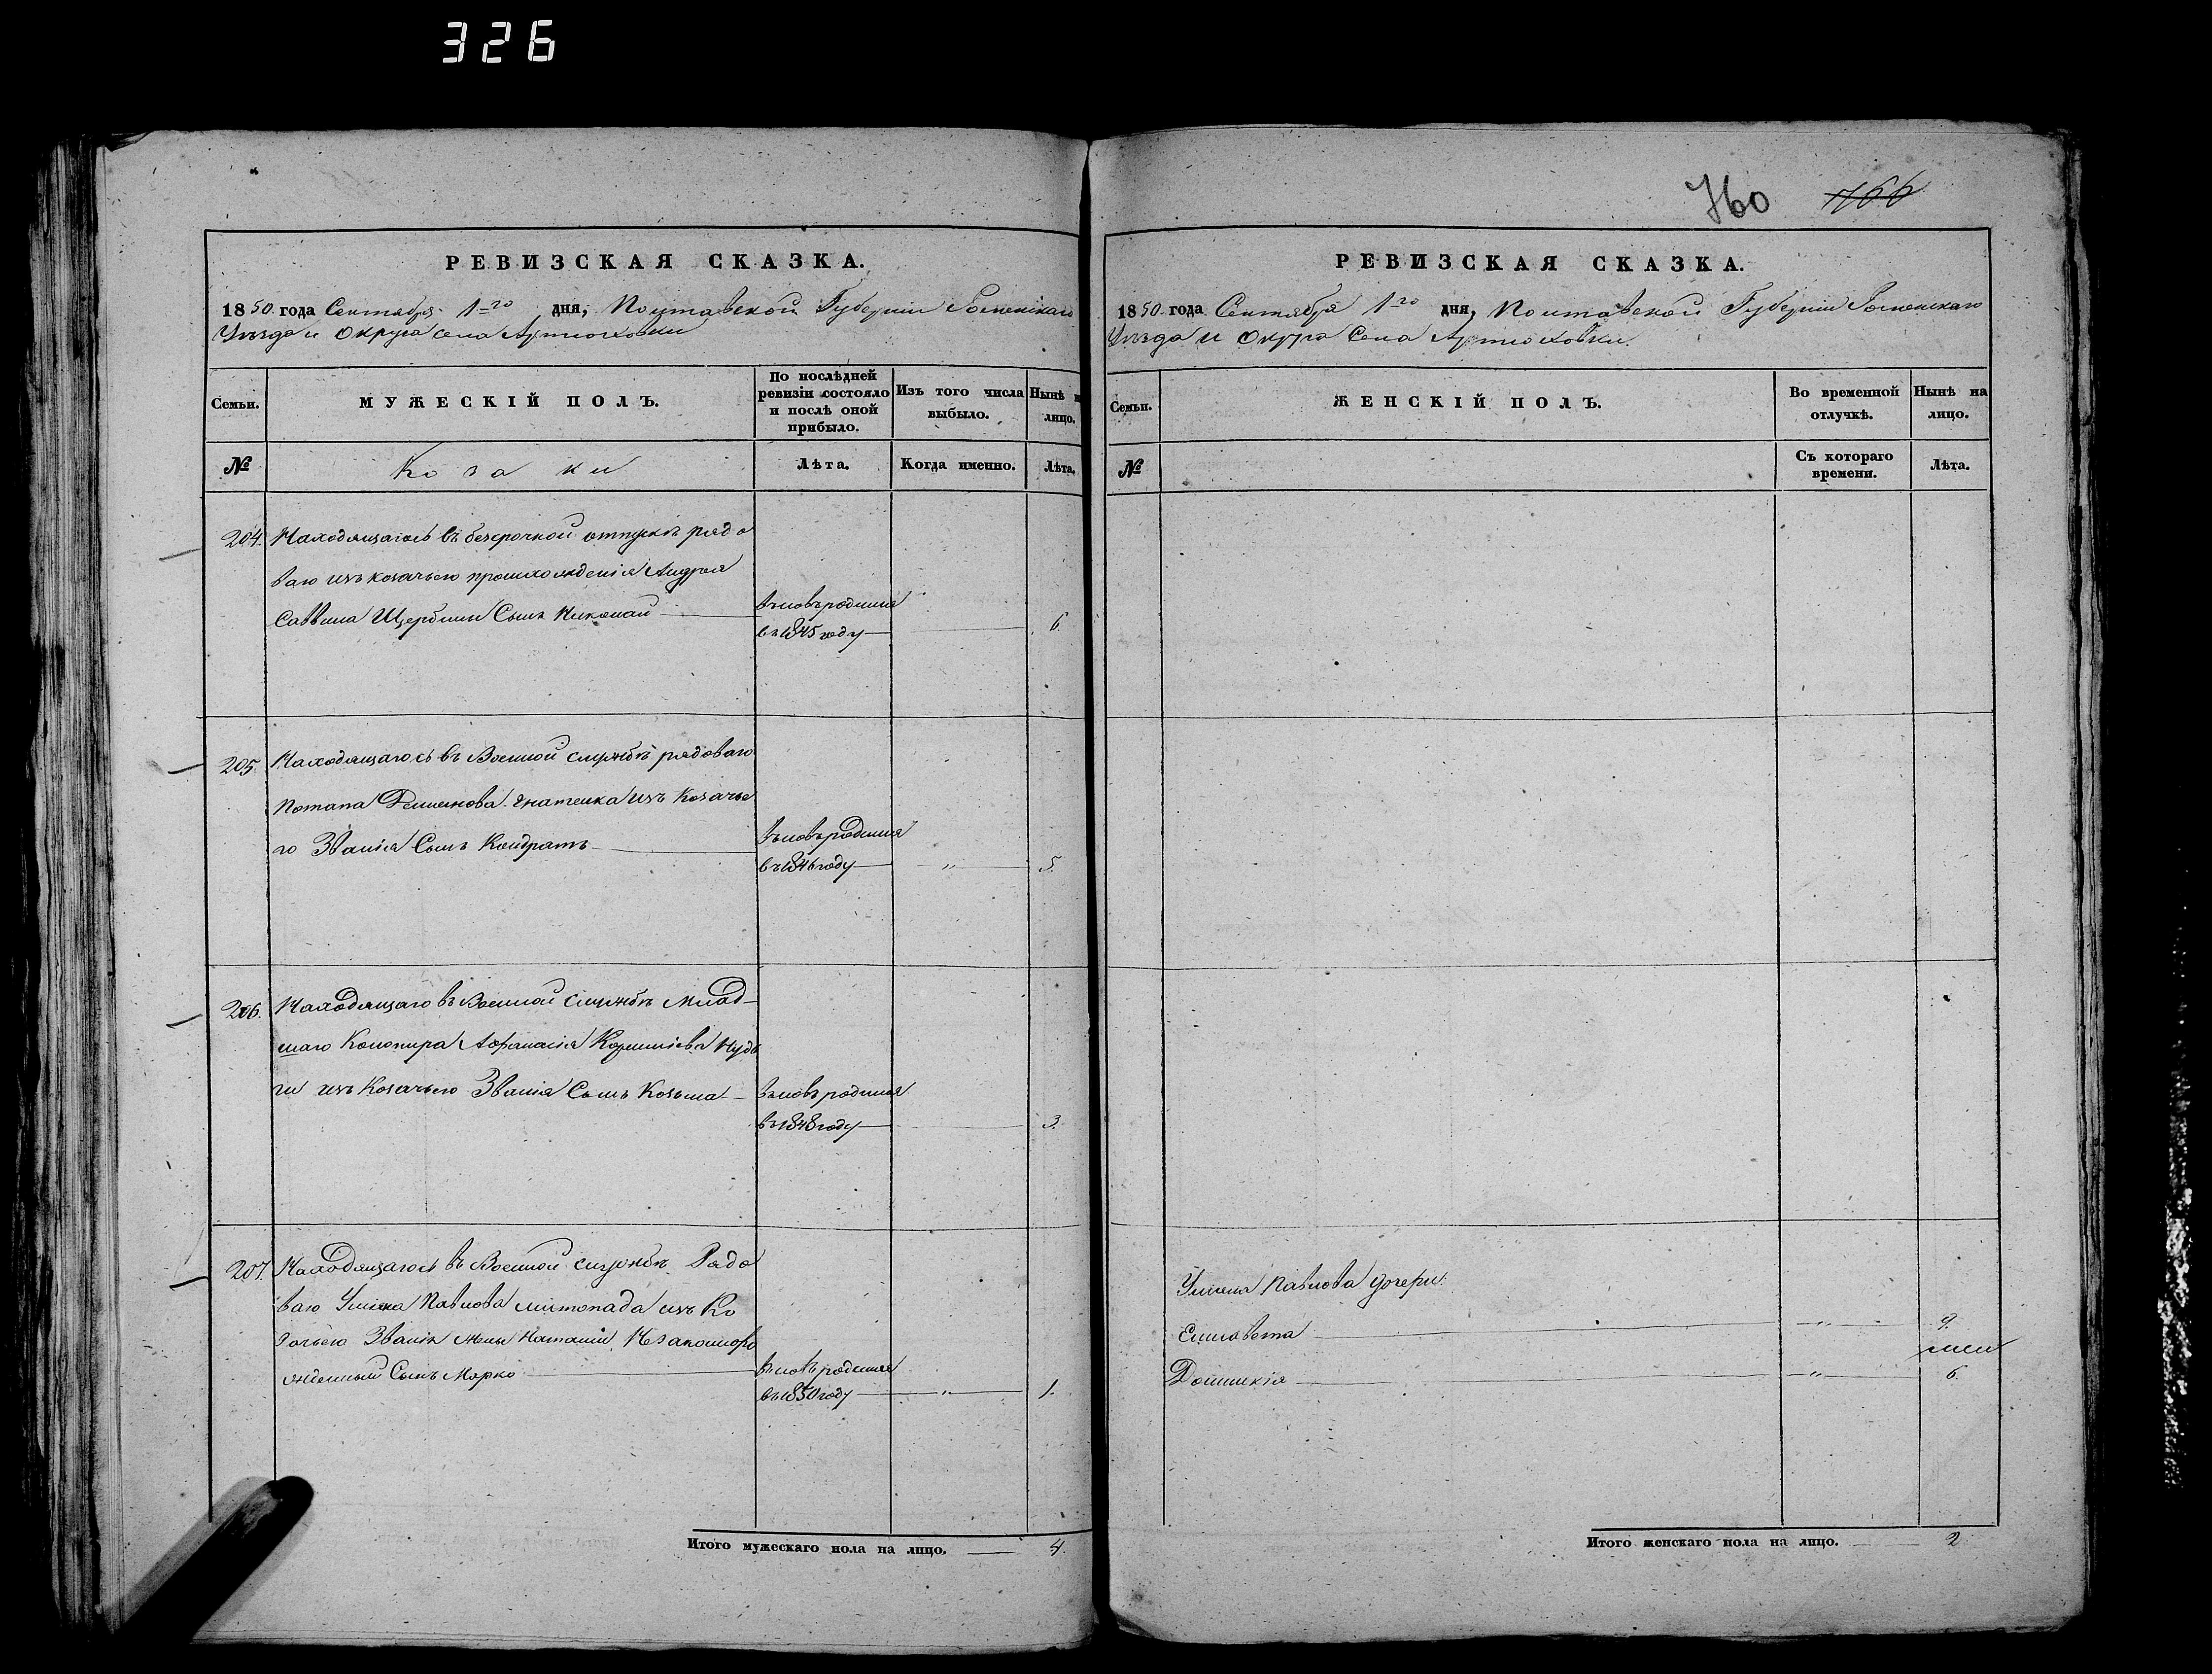 326
РЕВИЗСКАЯ СКАЗКА.
1850 года Сентября 1го дня, Полтавской Губерніи Роменскаго
Уѣзда и Округа села Артюховки
Семьи.
МУЖЕСКІЙ ПОЛЪ.
По послѣдней
ревизіи состояло
и послѣ оной
прибыло.
Изъ того числа
выбыло.
Нынѣ н
лицо.
№
Козаки
Лѣта.
Когда именно.
Лѣта.
204. Находящагось въ безсрочной отпускѣ рядо
ваго изъ козачьего происхожденія Андрея
Саввина Щербины Сынъ Николай
вновь родился
въ 1845 году
6.
205. Находящагось въ Военной службѣ рядоваго
Потапа Гнатенка изъ Козачье
го Званія Сынъ Кондратъ
вновь родился
въ 1846 году
"
5.
206. Находящаго въ Военной службѣ млад-
шаго Канонира Афанасія Корнилиева Нуд
ги изъ Козачьего Званія Сынъ Козьма
вновь родился
въ 1848 году
3.
207. Находящагось въ Военной службѣ Рядо
ваго Уліяна Павлова изъ Ко
зачьего Званія жены Наталіи Незаконоро
жденный Сынъ Марко
вновь родился
въ 1850 году
"
1.
Итого мужескаго пола на лицо. 4.
760 766
РЕВИЗСКАЯ СКАЗКА.
1850 года Сентября 1го дня, Полтавской Губерніи Роменскаго
Уѣзда и Округа Села Артюховки.
Семьи.
ЖЕНСКІЙ ПОЛЪ.
Во временной
отлучкѣ.
Нынѣ на
лицо.
№
Съ котораго
времени.
Лѣта.
Уліяна Павлова дочери:
Елисавета " 9.
Домникія " 6.
Итого женскаго пола на лицо. 2